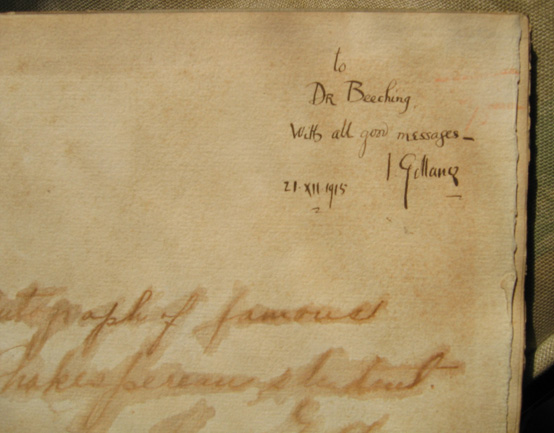 to
Dr Beeching.
With all good messages—
I Gollancz
21·XII·1915
autograph of famous
Shakesperean student.